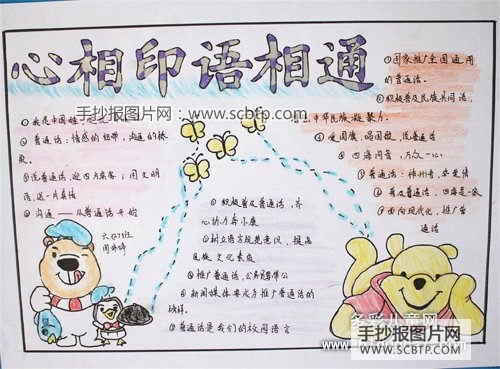 心相印语相通
手抄报图片网：www.scbtp.com
①我是中国娃
②普通话：情感的纽带，沟通的桥
梁。
③说普通话，迎四方宾客；用文明
语，送一片真情
④沟通——从普通话开始
①积极普及普通话，齐
心协力奔小康
②树立语言规范意识，提高
民族文化素质
③推广普通话，公务员带
④新闻媒体要成为推广普通话的
榜样。
⑤普通话是我们的校园语言
①国家推广全国通用
的普通话。
②积极普及民族共同语，
中华民族凝聚力。
④爱国旗，唱国歌，说普通话
⑤四海同音，万众一心
⑥普通话：神州音，华夏情
普及普通话，四海是一家
面向现代化，推广普
通话
多彩儿童网
手抄报图片网
WWW.SCBTP.COM